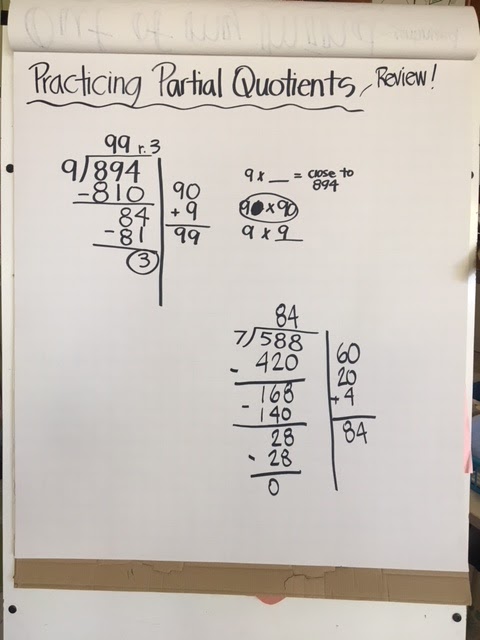 Practicing Partial Quotients, Review!
99 r.3
9)894
-810
84
-81
3
90
+9
99
9 x __ = close to
894
9 x 90
9 x 9
84
7)588
- 420
168
- 140
28
- 28
0
60
20
+ 4
84